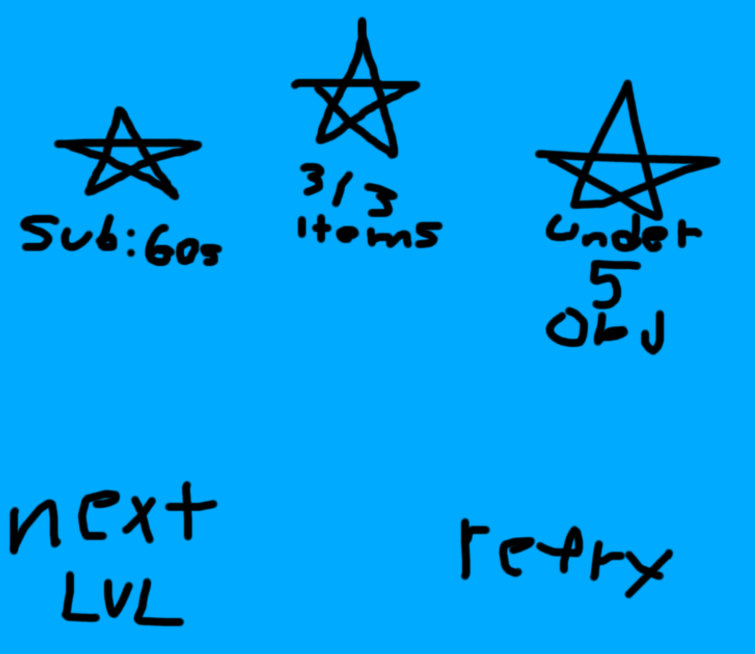 Sub:60s
3/3
items
under
5
Obj
next
LVL
retry